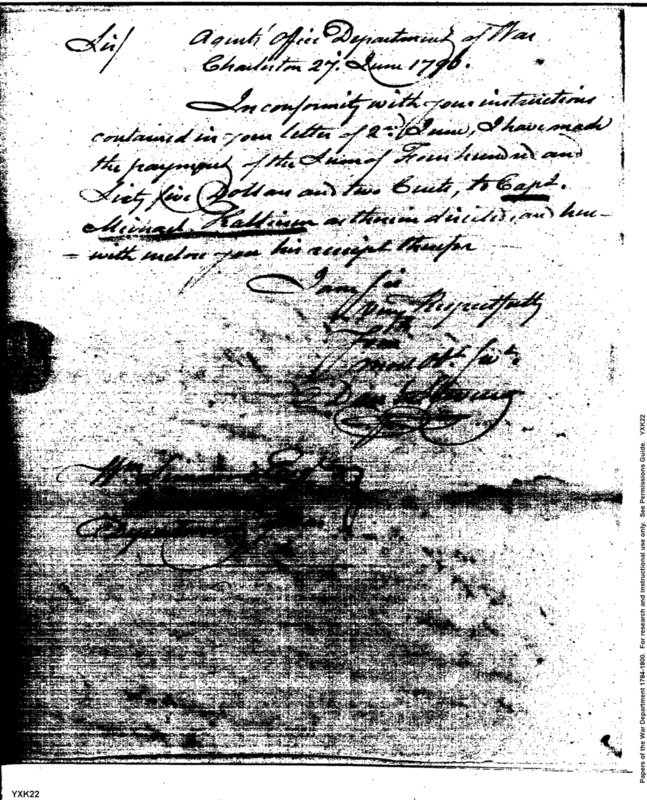 Sir/ Agents' Office Department of War
Charleston 27th. June 1796.
In conformity with your instructions
contained in your letter of 2nd June, I have made
the payment of the Sum of Four hundred and
Sixty five Dollars and two Cents, to Capt.
Michael Kalteisen as therein directed, and here-
- with inclose you his receipt therefor
I am Sir
Very Respectfully
Your
most Obt. Servt.
Danl Stevens
Wm Simmons Esqr
Department of War
Papers of the War Department 1784-1800. For research and instructional use only. See Permissions Guide. YXK22
YXK22